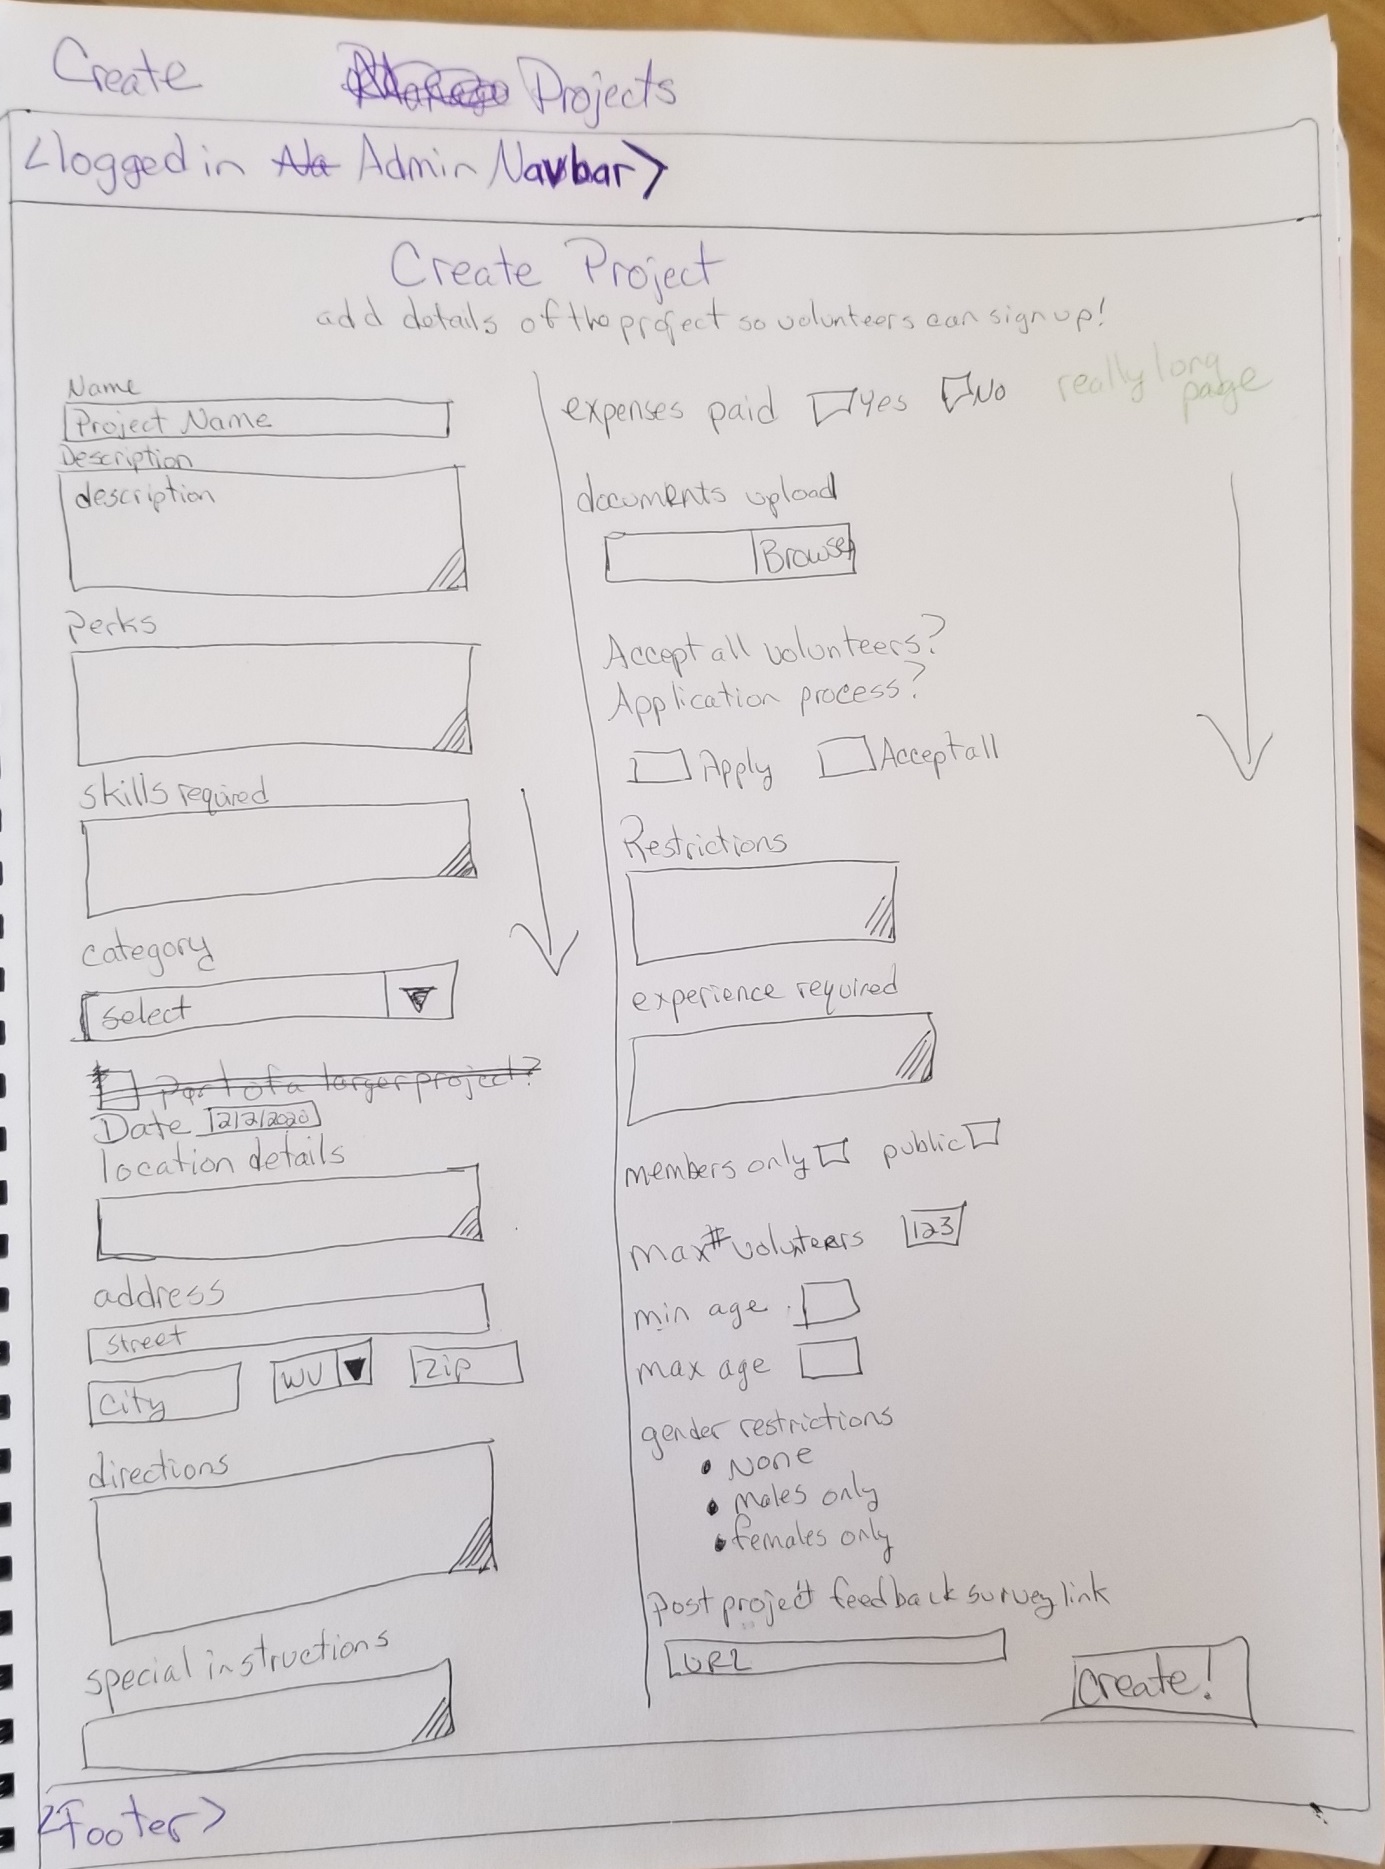 Create Manage Projects
<logged in Na Admin Navbar>
Create Project
add details of the project so volunteers can sign up!
really long
page
Name
Project Name
Description
description
perks
skills required
category
select
Part of a larger project?
Date 12/2/2020
location details
address
street
city WV zip
directions
special instructions
expenses paid Yes No
documents upload
Browse
Accept all volunteers?
Application process?
Apply Accept all
Restrictions
experience required
members only public
max # volunteers 123
min age
max age
gender restrictions
• None
• males only
• females only
post project feedback survey link
URL
create!
<Footer>